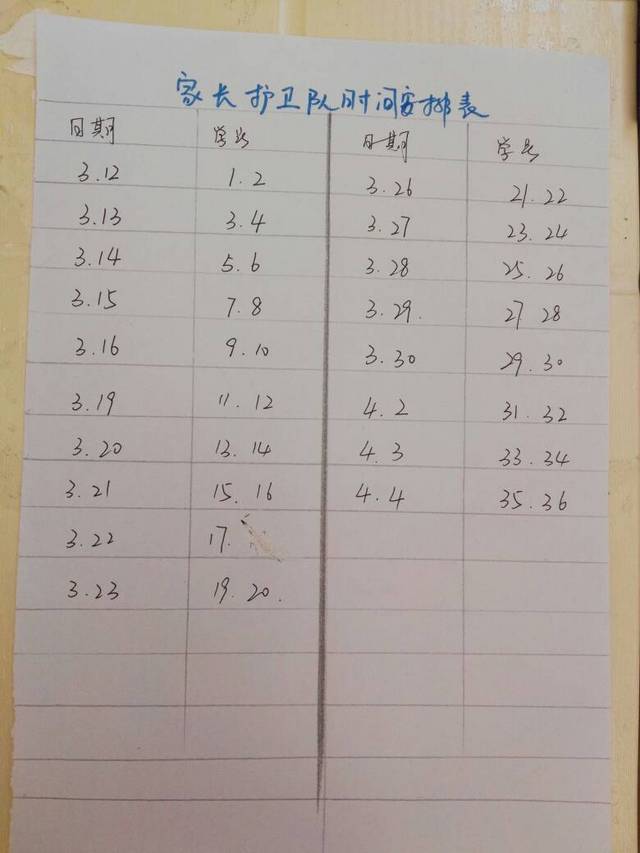 家长护卫队时间安排表
日期 学号 日期 学号
3.12 1.2 3.26 21.22
3.13 3.4 3.27 23.24
3.14 5.6 3.28 25.26
3.15 7.8 3.29. 27 28
3.16 9.10 3.30 29.30
3.19 11.12 4.2 31.32
3.20 13.14 4.3 33.34
3.21 15.16 4.4 35.36
3.22 17.
3.23 19.20.